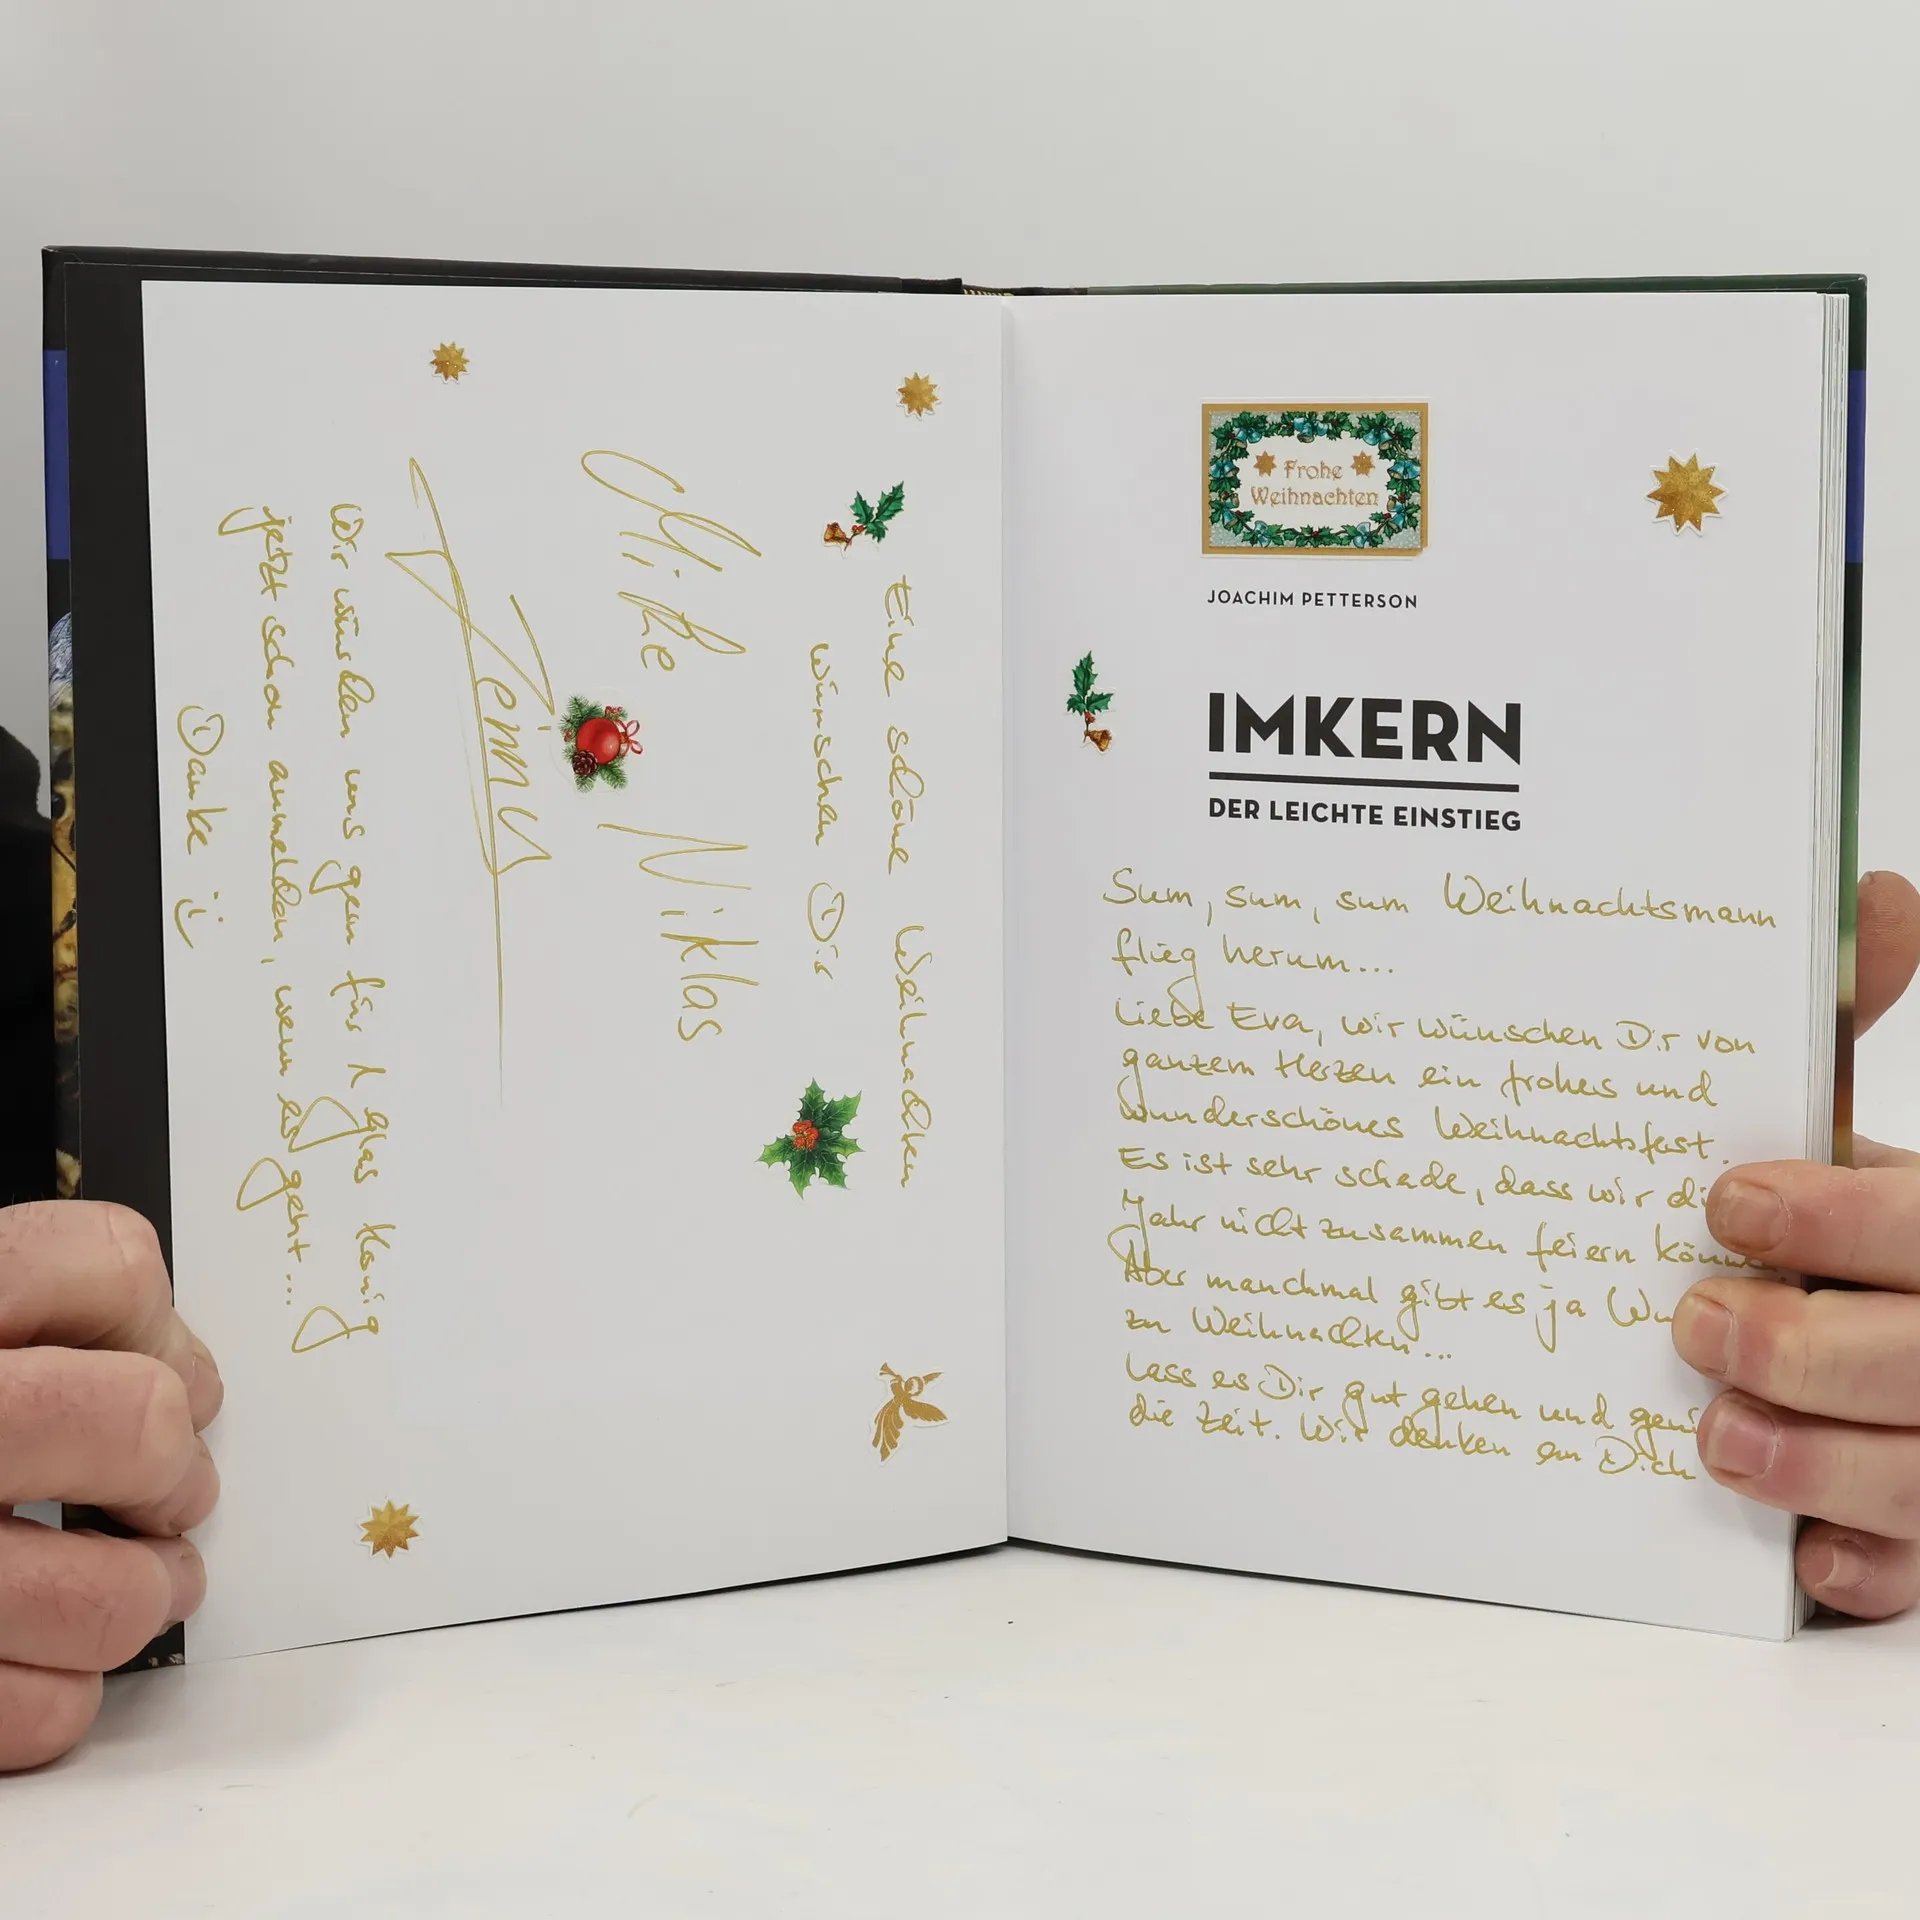 Eine schöne Weihnachten
wünschen Dir
Niklas
Wir würden uns gern für 1 Glas Honig
jetzt schon anmelden, wenn es geht...
Danke :)
Frohe
Weihnachten
JOACHIM PETTERSON
IMKERN
DER LEICHTE EINSTIEG
Sum, sum, sum Weihnachtsmann
flieg herum...
Liebe Eva, wir wünschen Dir von
ganzem Herzen ein frohes und
wunderschönes Weihnachtsfest.
Es ist sehr schade, dass wir
Jahr nicht zusammen feiern
Aber manchmal gibt es ja
zu Weihnachten...
Lass es Dir gut gehen und
die Zeit. Wir denken an Dich